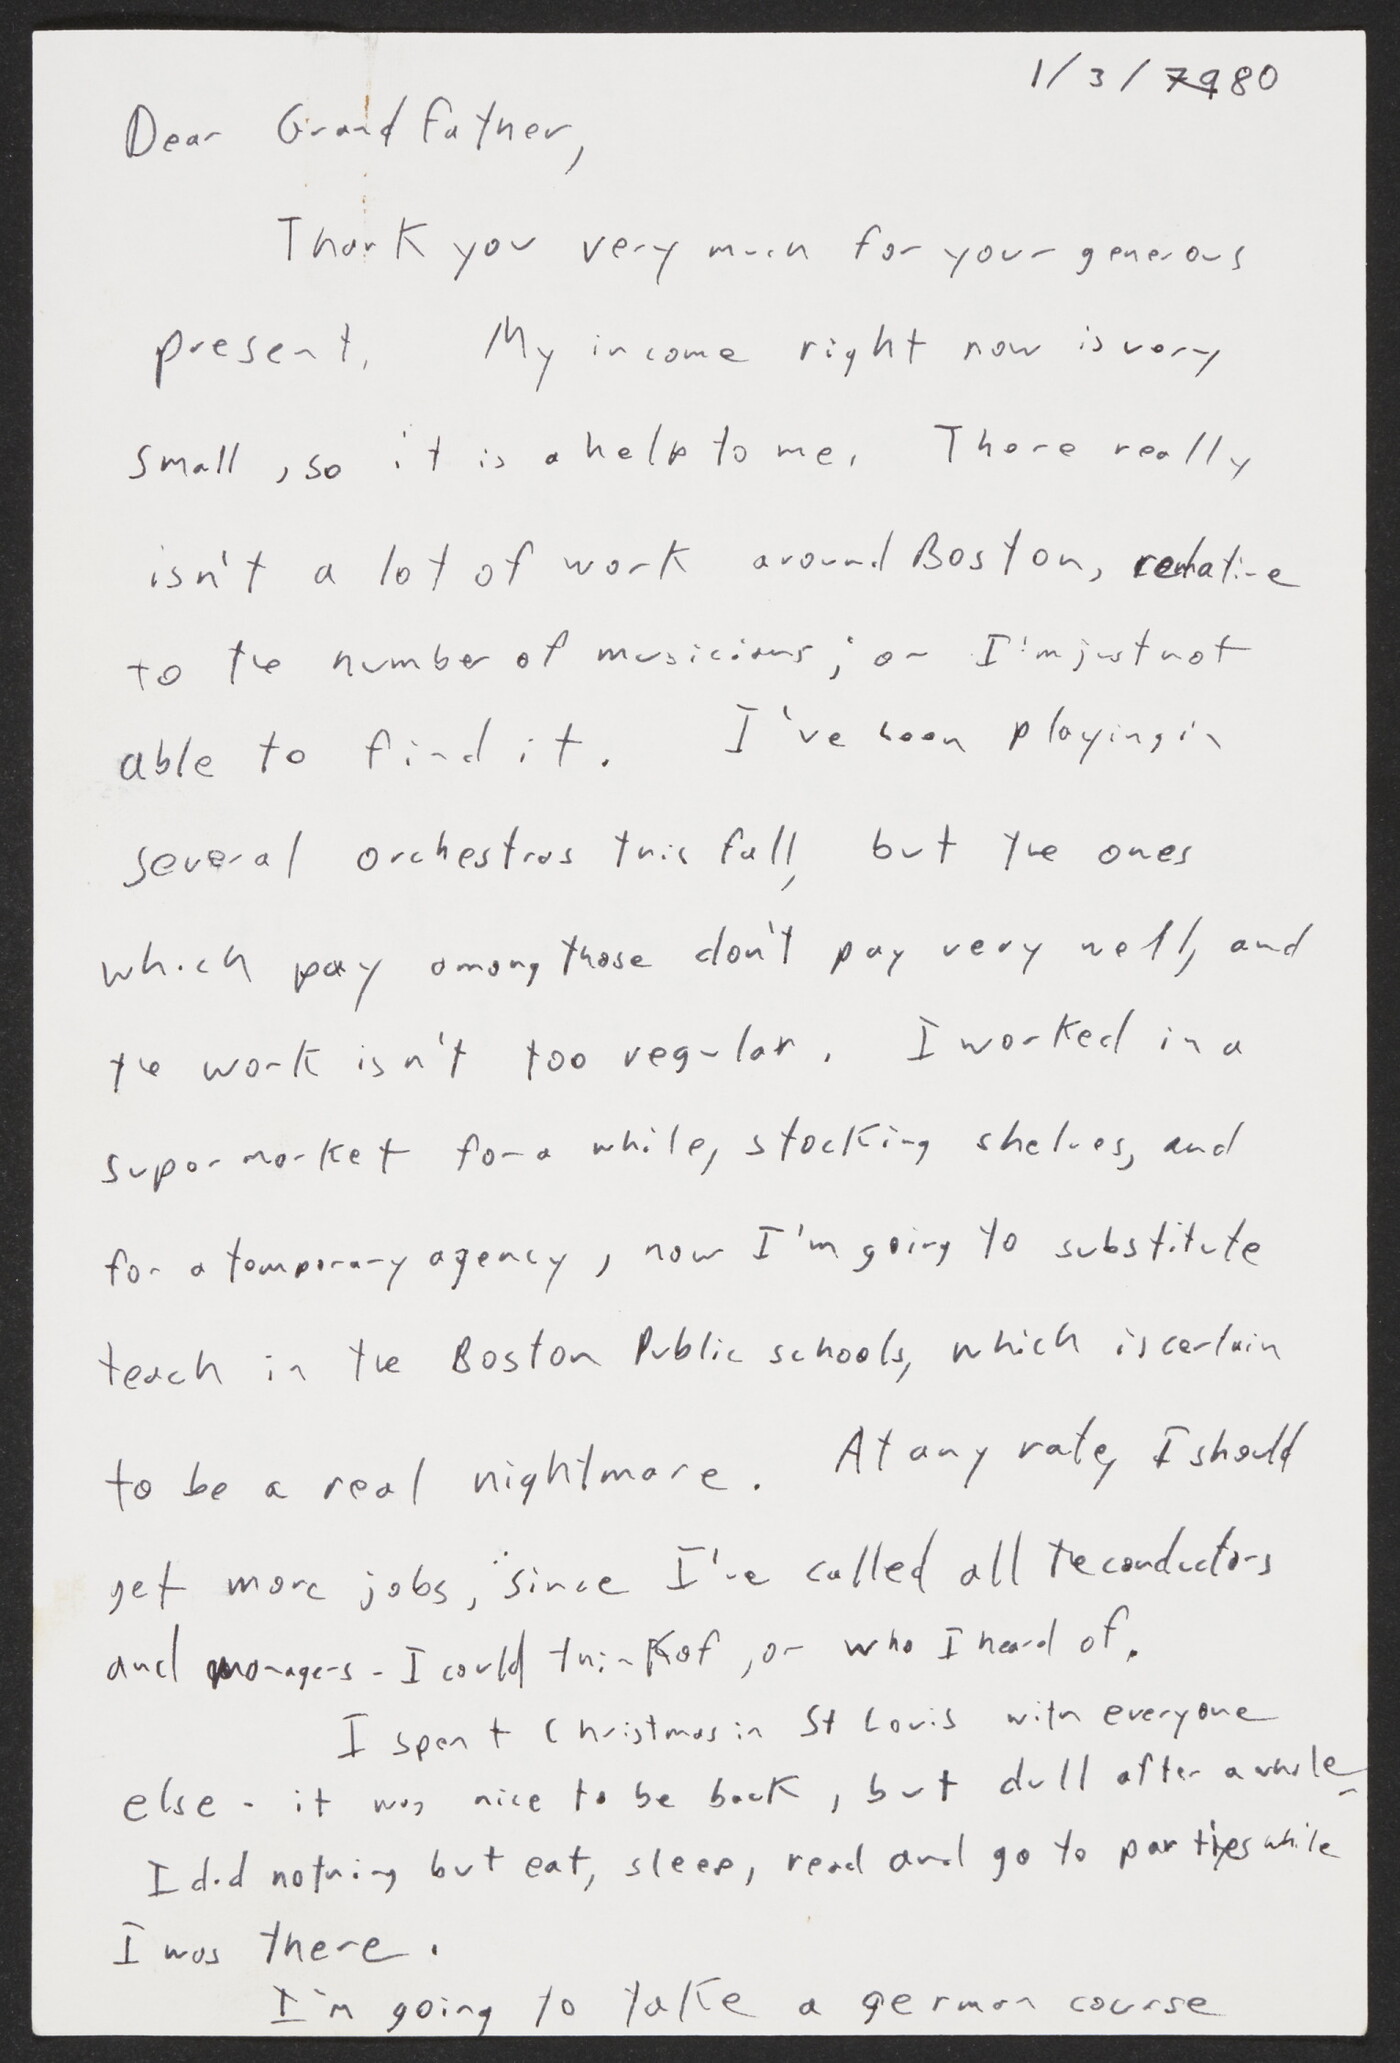 1/3/7980
Dear Grandfather,
Thank you very much for your generous
present. My income right now is very
small, so it is a help to me. There really
isn't a lot of work around Boston, relative
to the number of musicians; or I'm just not
able to find it. I've been playing in
several orchestras this fall, but the ones
which pay among those don't pay very well, and
the work isn't too regular. I worked in a
supermarket for a while, stocking shelves, and
for a temporary agency, now I'm going to substitute
teach in the Boston Public schools, which is certain
to be a real nightmare. At any rate, I should
get more jobs, since I've called all the conductors
and managers - I could think of, or who I heard of.
I spent Christmas in St Louis with everyone
else - it was nice to be back, but dull after a while -
I did nothing but eat, sleep, read and go to parties while
I was there.
I'm going to take a german course